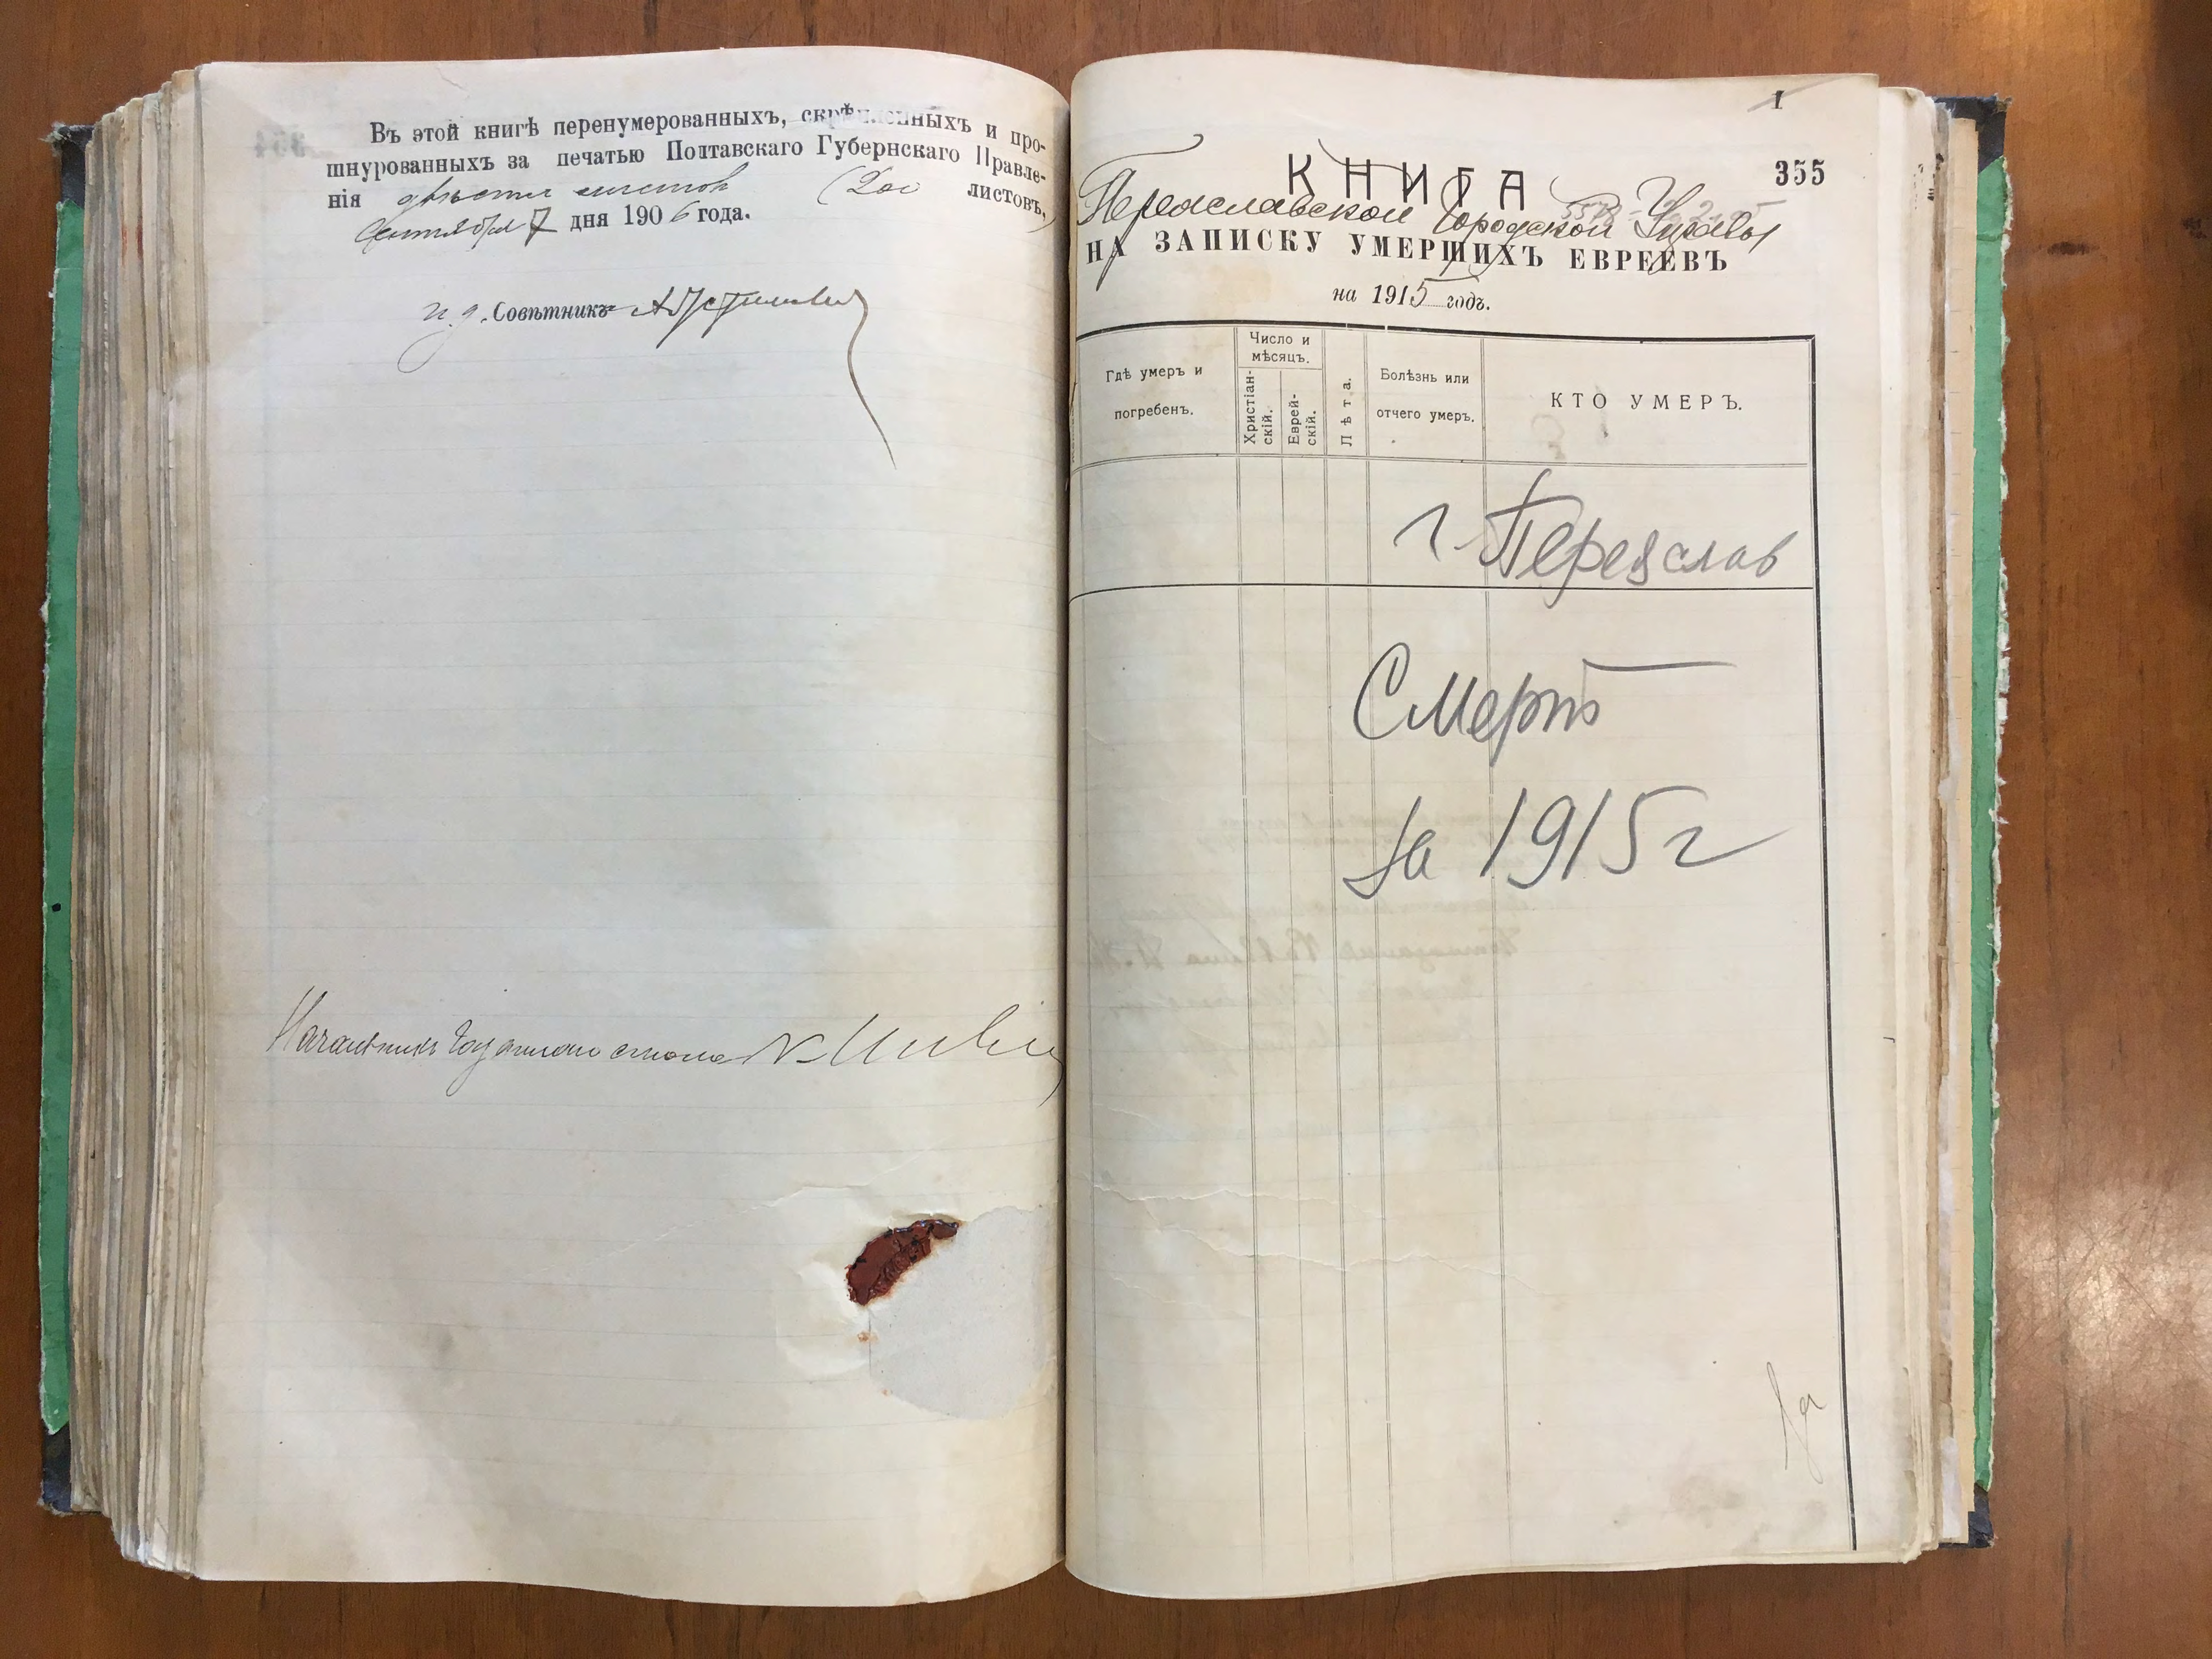 Въ этой книгѣ перенумерованныхъ, скрѣпленныхъ и про-
шнурованныхъ за печатью Полтавскаго Губернскаго Правле-
нія двѣсти листов (200 листовъ,)
Сентября 7 дня 1906 года.
И. д. Совѣтникъ
Начальникъ стола
1
355
КНИГА
Переяславской Городской Управы
НА ЗАПИСКУ УМЕРШИХЪ ЕВРЕЕВЪ
на 1915 годъ.
Гдѣ умеръ и погребенъ.
Число и мѣсяцъ.
Христіан-скій.
Еврей-скій.
Лѣта.
Болѣзнь или отчего умеръ.
КТО УМЕРЪ.
г. Переяслав
Смерть
за 1915 г